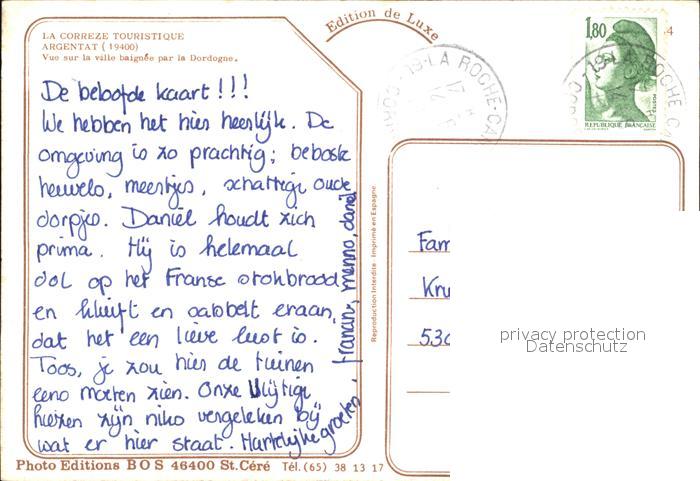 LA CORREZE TOURISTIQUE
ARGENTAT (19400)
Vue sur la ville baignée par la Dordogne.
Edition de Luxe
De beloofde kaart!!!
We hebben het hier heerlijk. De
omgeving is zo prachtig; beboste
heuvels, meertjes, schattige oude
dorpjes. Daniël houdt zich
prima. Hij is helemaal
dol op het Franse stokbrood
en kluift en sabbelt eraan,
dat het een lieve lust is.
Toos, je zou hier de tuinen
eens moeten zien. Onze vlijtige
liezen zijn niks vergeleken bij
wat er hier staat. Hartelijke groeten,
francin, menno, daniël
Photo Editions BOS 46400 St.Céré Tél.(65) 38 13 17
Reproduction Interdite - Imprimé en Espagne
19-LA ROCHE-CA
1,80
REPUBLIQUE FRANCAISE
19-LA ROCHE CA
4
Fam
Kru
privacy protection
Datenschutz